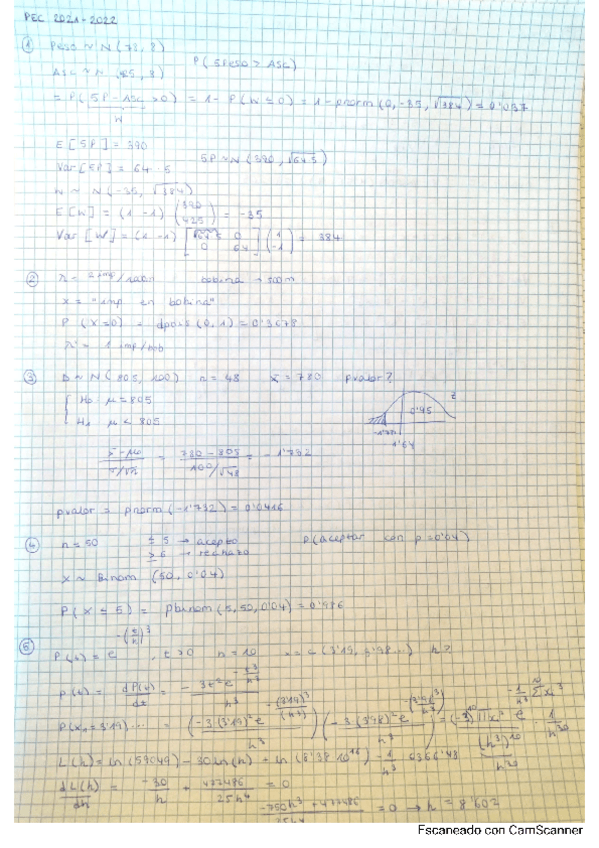 PEC 2021-2022
① Peso ~ N(78, 8) P(5Peso > Asc)
Asc ~ N(425, 8)
= P(5P - Asc > 0) = 1 - P(W ≤ 0) = 1 - pnorm(0, -35, √384) = 0'037
W
E[5P] = 390
Var[5P] = 64·5 5P ~ N(390, √64·5)
W ~ N(-35, √384)
E[W] = (1 -1) (390 425) = -35
Var[W] = (1 -1) [ 0 0 64 ] (1 -1) = 384
② bobina → 500m
x = "imp en bobina"
P(X=0) = dpois(0, 1) = 0'3678
1 imp/bob
③ D ~ N(805, 100) n = 48 x̄ = 780 pvalor?
{ H₀ μ = 805
H₁ μ < 805
z
0'45
1'64
x̄-μ₀ / σ/√n = 780 - 805 / 100/√48 = -1'732
pvalor = pnorm(-1'732) = 0'0416
④ n = 50 ≤ 5 → acepto P(aceptar con p = 0'04)
≥ 6 → rechazo
X ~ Binom (50, 0'04)
P(X ≤ 5) = pbinom(5, 50, 0'04) = 0'986
⑤ P(t) = e^-(t/h)³, t > 0 n = 10 x = c(3'19, 3'98...) h?
p(t) = dP(t)/dt = - 3t² e^-t³/h³ / h³
P(x₁ = 3'19)... = (-3·(3'19)² e^-(3'19)³/(h³) / h³) (-3·(3'98)² e^-(3'98)³/h³ / h³) = (-3)¹⁰ Πx² e^-1/h³ Σx³ · 1/h³⁰
(h³)¹⁰
h³⁰
L(h) = ln(59049) - 30ln(h) + ln( ) - 1/h³
dL(h)/dh = -30/h + 477486/25h⁴ = 0
-750h³ + 477486 / 25h⁴ = 0 → h = 8'602
Escaneado con CamScanner